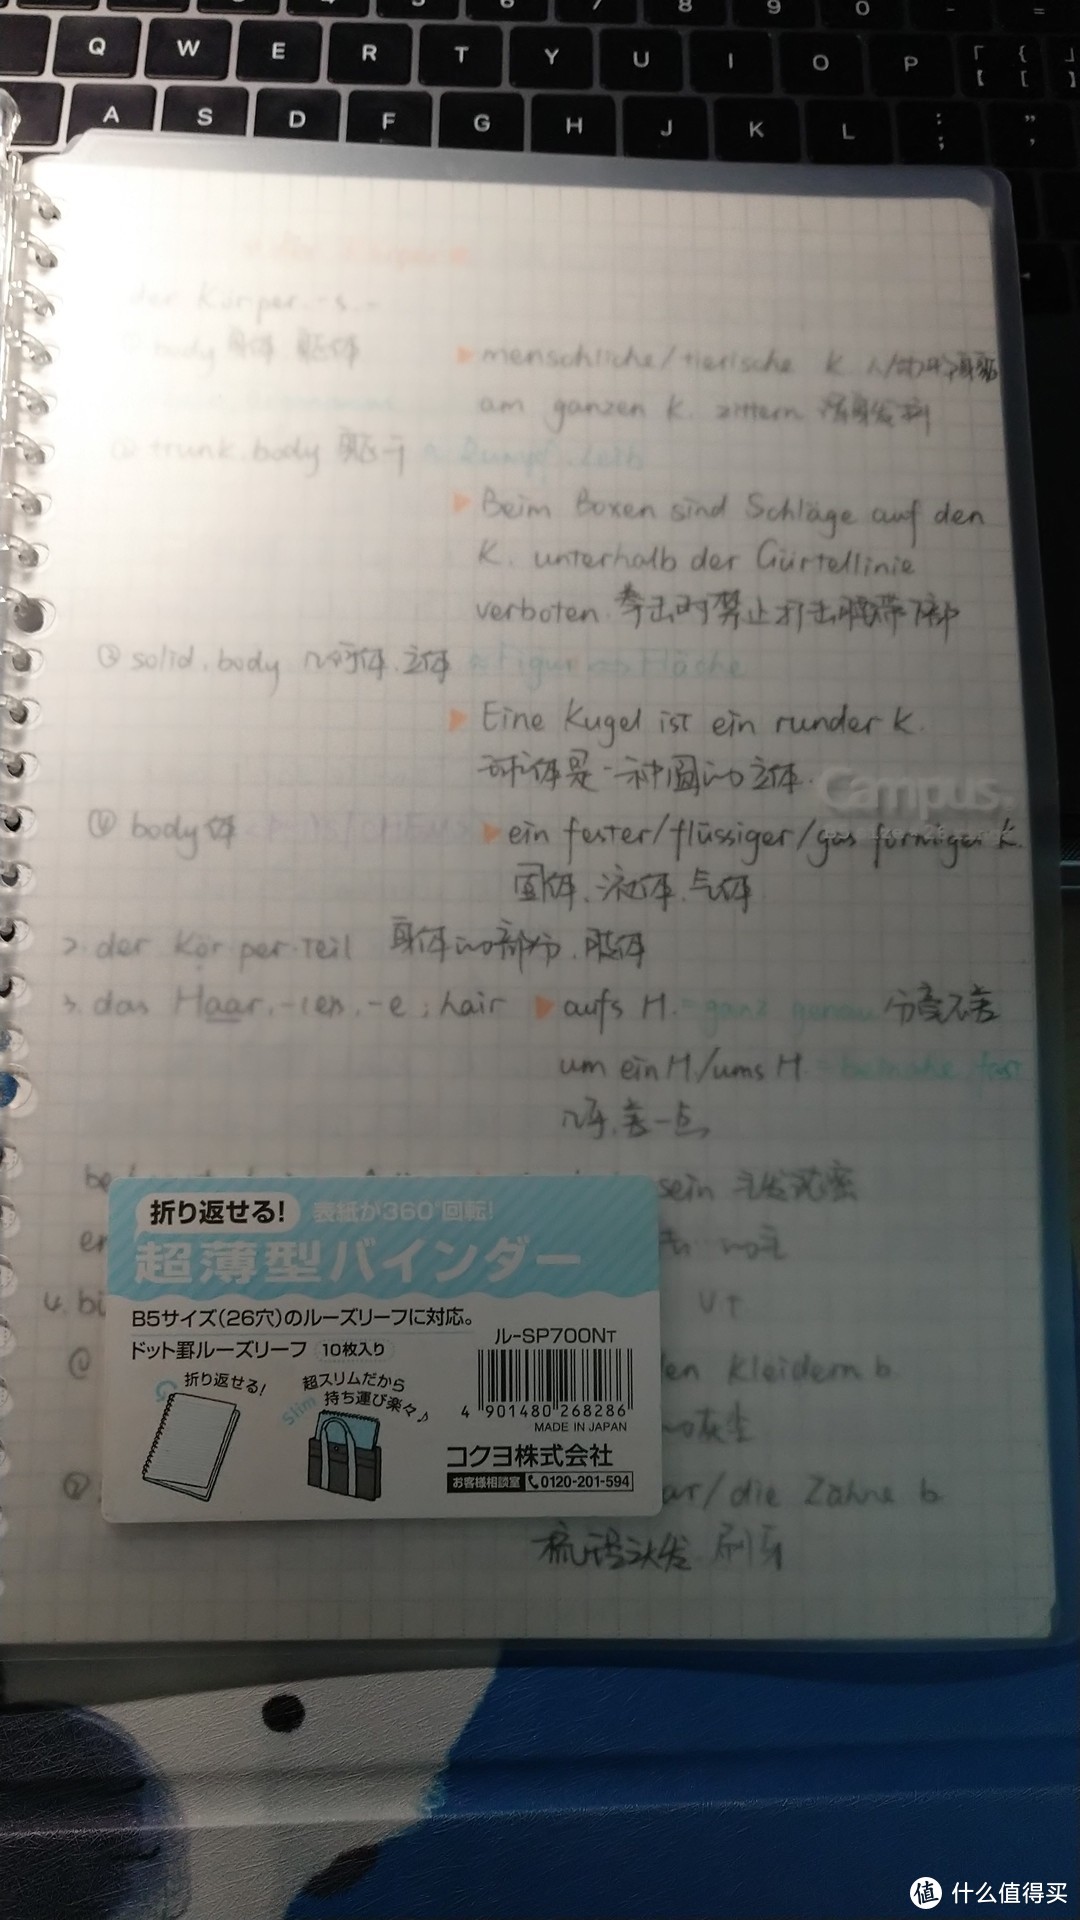 Q W E R T Y U I O P
A S D F G H J K L
der Körper. -s. -
① body 身体 躯体
▶ menschliche/tierische K.
am ganzen K. zittern 浑身发抖
② trunk. body 躯干 Rumpf. Leib
▶ Beim Boxen sind Schläge auf den
K. unterhalb der Gürtellinie
verboten. 拳击时禁止打击腰带下部
③ solid. body 几何体. 立体 ≈ Figur ↔ Fläche
▶ Eine Kugel ist ein runder K.
球体是一种圆的立体.
Campus.
④ body 体 ▶ ein fester/flüssiger/gasförmiger K.
固体. 液体. 气体
2. der Kör·per·teil 身体的部分. 肢体
3. das Haar. -(e)s. -e ; hair ▶ aufs H. = ganz genau 分毫不差
um ein H./ums H. = beinahe, fast
几乎. 差一点
sein 毛发浓密
4. bü
vt
折り返せる! 表紙が360°回転!
超薄型バインダー
B5サイズ(26穴)のルーズリーフに対応。
ドット罫ルーズリーフ 10枚入り
ル-SP700NT
折り返せる!
超スリムだから
持ち運び楽々♪
Slim
4 901480 268286
MADE IN JAPAN
コクヨ株式会社
お客様相談室 0120-201-594
en Kleidern b.
的灰尘
②
ar/die Zähne b.
梳头发. 刷牙
值 什么值得买